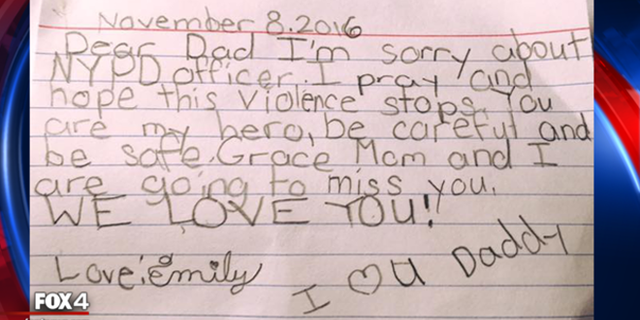 November 8.2016
Dear Dad I'm sorry about
NYPD officer. I pray and
hope this violence stops. You
are my hero, be careful and
be safe. Grace Mom and I
are going to miss you.
WE LOVE YOU!
Love: Emily
I ♡ U Daddy
FOX 4